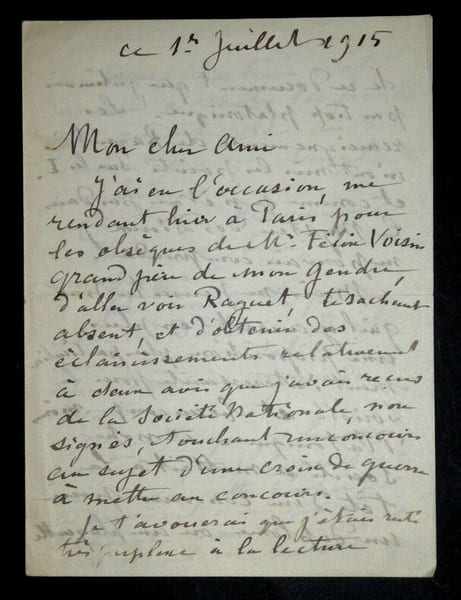 ce 1r Juillet 1915
Mon cher Ami
J'ai eu l'occasion, me
rendant hier à Paris pour
les obsèques de Mr. Félix Voisin
grand père de mon Gendre,
d'aller voir Raquet, te sachant
absent, et d'obtenir des
éclaircissements relativement
à deux avis que j'avais reçus
de la Société Nationale, non
signés, touchant un concours
au sujet d'une croix de guerre
à mettre au concours.
Je t'avouerai que j'étais resté
très perplexe à la lecture